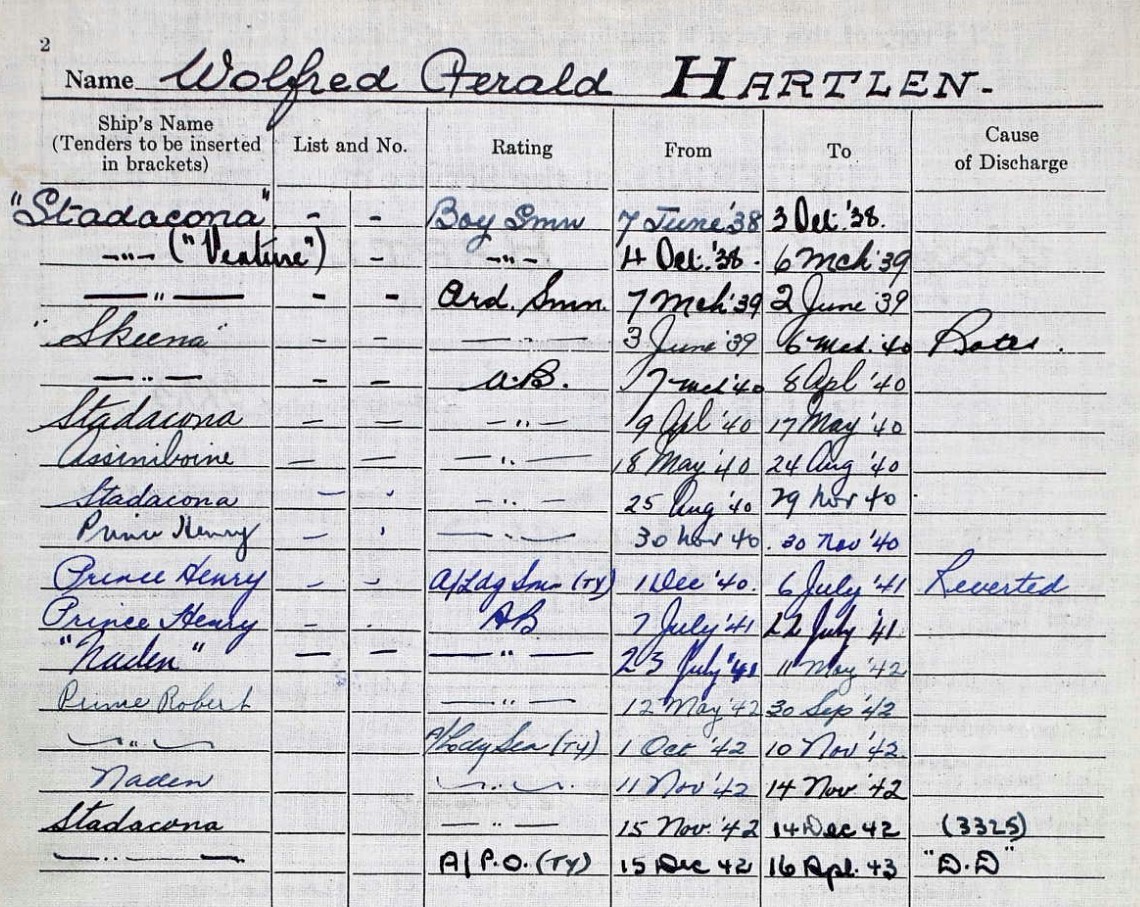 2
Name Wolfred Gerald HARTLEN.-
Ship's Name (Tenders to be inserted in brackets) List and No. Rating From To Cause of Discharge
"Stadacona" - - Boy Smn 7 June '38 3 Oct. '38.
—"— ("Venture") - —"— 4 Oct. '38. 6 Mch '39
—"— - - Ord. Smn. 7 Mch '39 2 June '39
"Skeena" —"— 3 June '39 6 Mch. '40
—"— - - A.B. 7 Mch '40 8 Apl '40
Stadacona — — —"— 9 Apl '40 17 May '40
Assiniboine — — —"— 18 May '40 24 Aug '40
Stadacona — —"— 25 Aug '40 29 Nov 40
Prince Henry — —"— 30 Nov '40 30 Nov '40
Prince Henry - - A/Ldg Smn (TY) 1 Dec '40. 6 July '41 Reverted
Prince Henry - . AB 7 July '41 22 July '41.
"Naden" — — —"— 23 July '41 11 May '42
Prince Robert —"— 12 May '42 30 Sep '42
—"— A/Ldg Sea (TY) 1 Oct '42 10 Nov '42.
Naden —"— 11 Nov '42 14 Nov '42
Stadacona —"— 15 Nov. '42 14 Dec 42 (3325)
—"— A/P.O. (TY) 15 Dec 42 16 Apl. 43 "D.D"